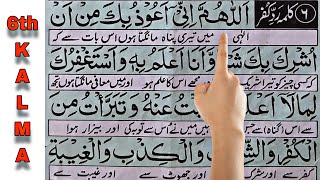 6th KALMA
٦ کلمہ رد کفر
اَللّٰهُمَّ اِنِّیْۤ اَعُوْذُ بِكَ مِنْ اَنْ
الٰہی میں تیری پناہ مانگتا ہوں اس بات سے کہ
اُشْرِكَ بِكَ شَیْئًا وَّاَنَا اَعْلَمُ بِهٖ وَاَسْتَغْفِرُكَ
کسی چیز کو تیرا شریک اس کا علم ہو اور میں معافی مانگتا ہوں تجھ
لِمَا لَاۤ اَعْلَمُ عَنْهُ وَتَبَرَّأْتُ مِنَ
سے اس (گناہ) سے جس میں نے اس سے توبہ کی اور بیزار ہوا
الْكُفْرِ وَالشِّرْكِ وَالْكِذْبِ وَالْغِیْبَةِ
کفر سے اور شرک اور جھوٹ سے اور غیبت سے